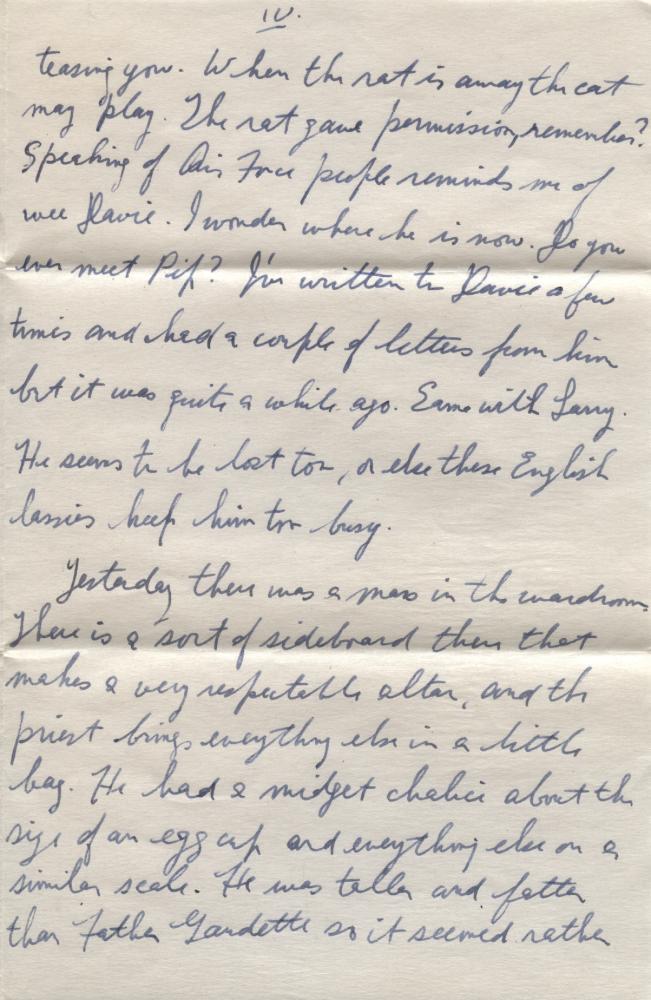 IV.
teasing you. When the rat is away the cat
may play. The rat gave permission, remember?
Speaking of Air Force people reminds me of
wee Davie. I wonder where he is now. Do you
ever meet Pip? I've written to Davie a few
times and had a couple of letters from him
but it was quite a while ago. Same with Larry.
He seems to be lost too, or else these English
lassies keep him too busy.
Yesterday there was a mass in the wardroom.
There is a sort of sideboard there that
makes a very respectable altar, and the
priest brings everything else in a little
bag. He had a midget chalice about the
size of an egg cup and everything else on a
similar scale. He was taller and fatter
than Father Gaudette so it seemed rather